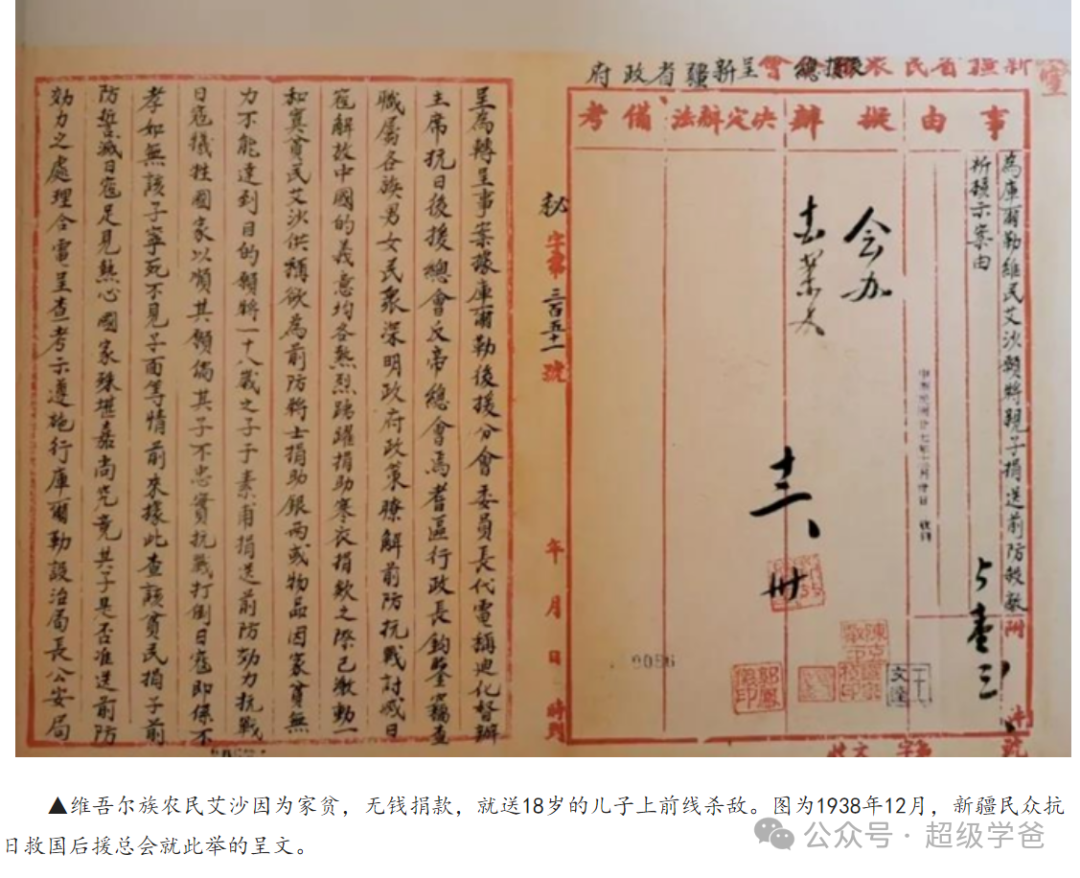 新疆省民眾總會呈新疆省政府
事由
擬辦
決定辦法
備考
為庫爾勒維民艾沙願將親子捐送前防殺敵
祈核示案由
附件
会办
十二、卅
0086
秘字第三百五十一號
年月日時到
呈為轉呈事案據庫爾勒後援分會委員長代電稱迪化督辦
主席抗日後援總會反帝總會焉耆區行政長鈞鑒竊查
職屬各族男女民眾深明政府政策瞭解前防抗戰討滅日
寇解放中國的義意均各熱烈踴躍捐助寒衣捐欵之際已激動一
和寞貧民艾沙供稱欲為前防將士捐助銀両或物品因家貧無
力不能達到目的願將一十八歲之子于素甫捐送前防効力抗戰
日寇犧牲國家以償其願倘其子不忠實抗戰打倒日寇即係不
孝如無該子寧死不見子面等情前來據此查該貧民捐子前
防誓滅日寇足見熱心國家殊堪嘉尚究竟其子是否准送前防
効力之處理合電呈查考示遵施行庫爾勒設治局長公安局
▲维吾尔族农民艾沙因为家贫，无钱捐款，就送18岁的儿子上前线杀敌。图为1938年12月，新疆民众抗
日救国后援总会就此举的呈文。
公众号·超级学爸